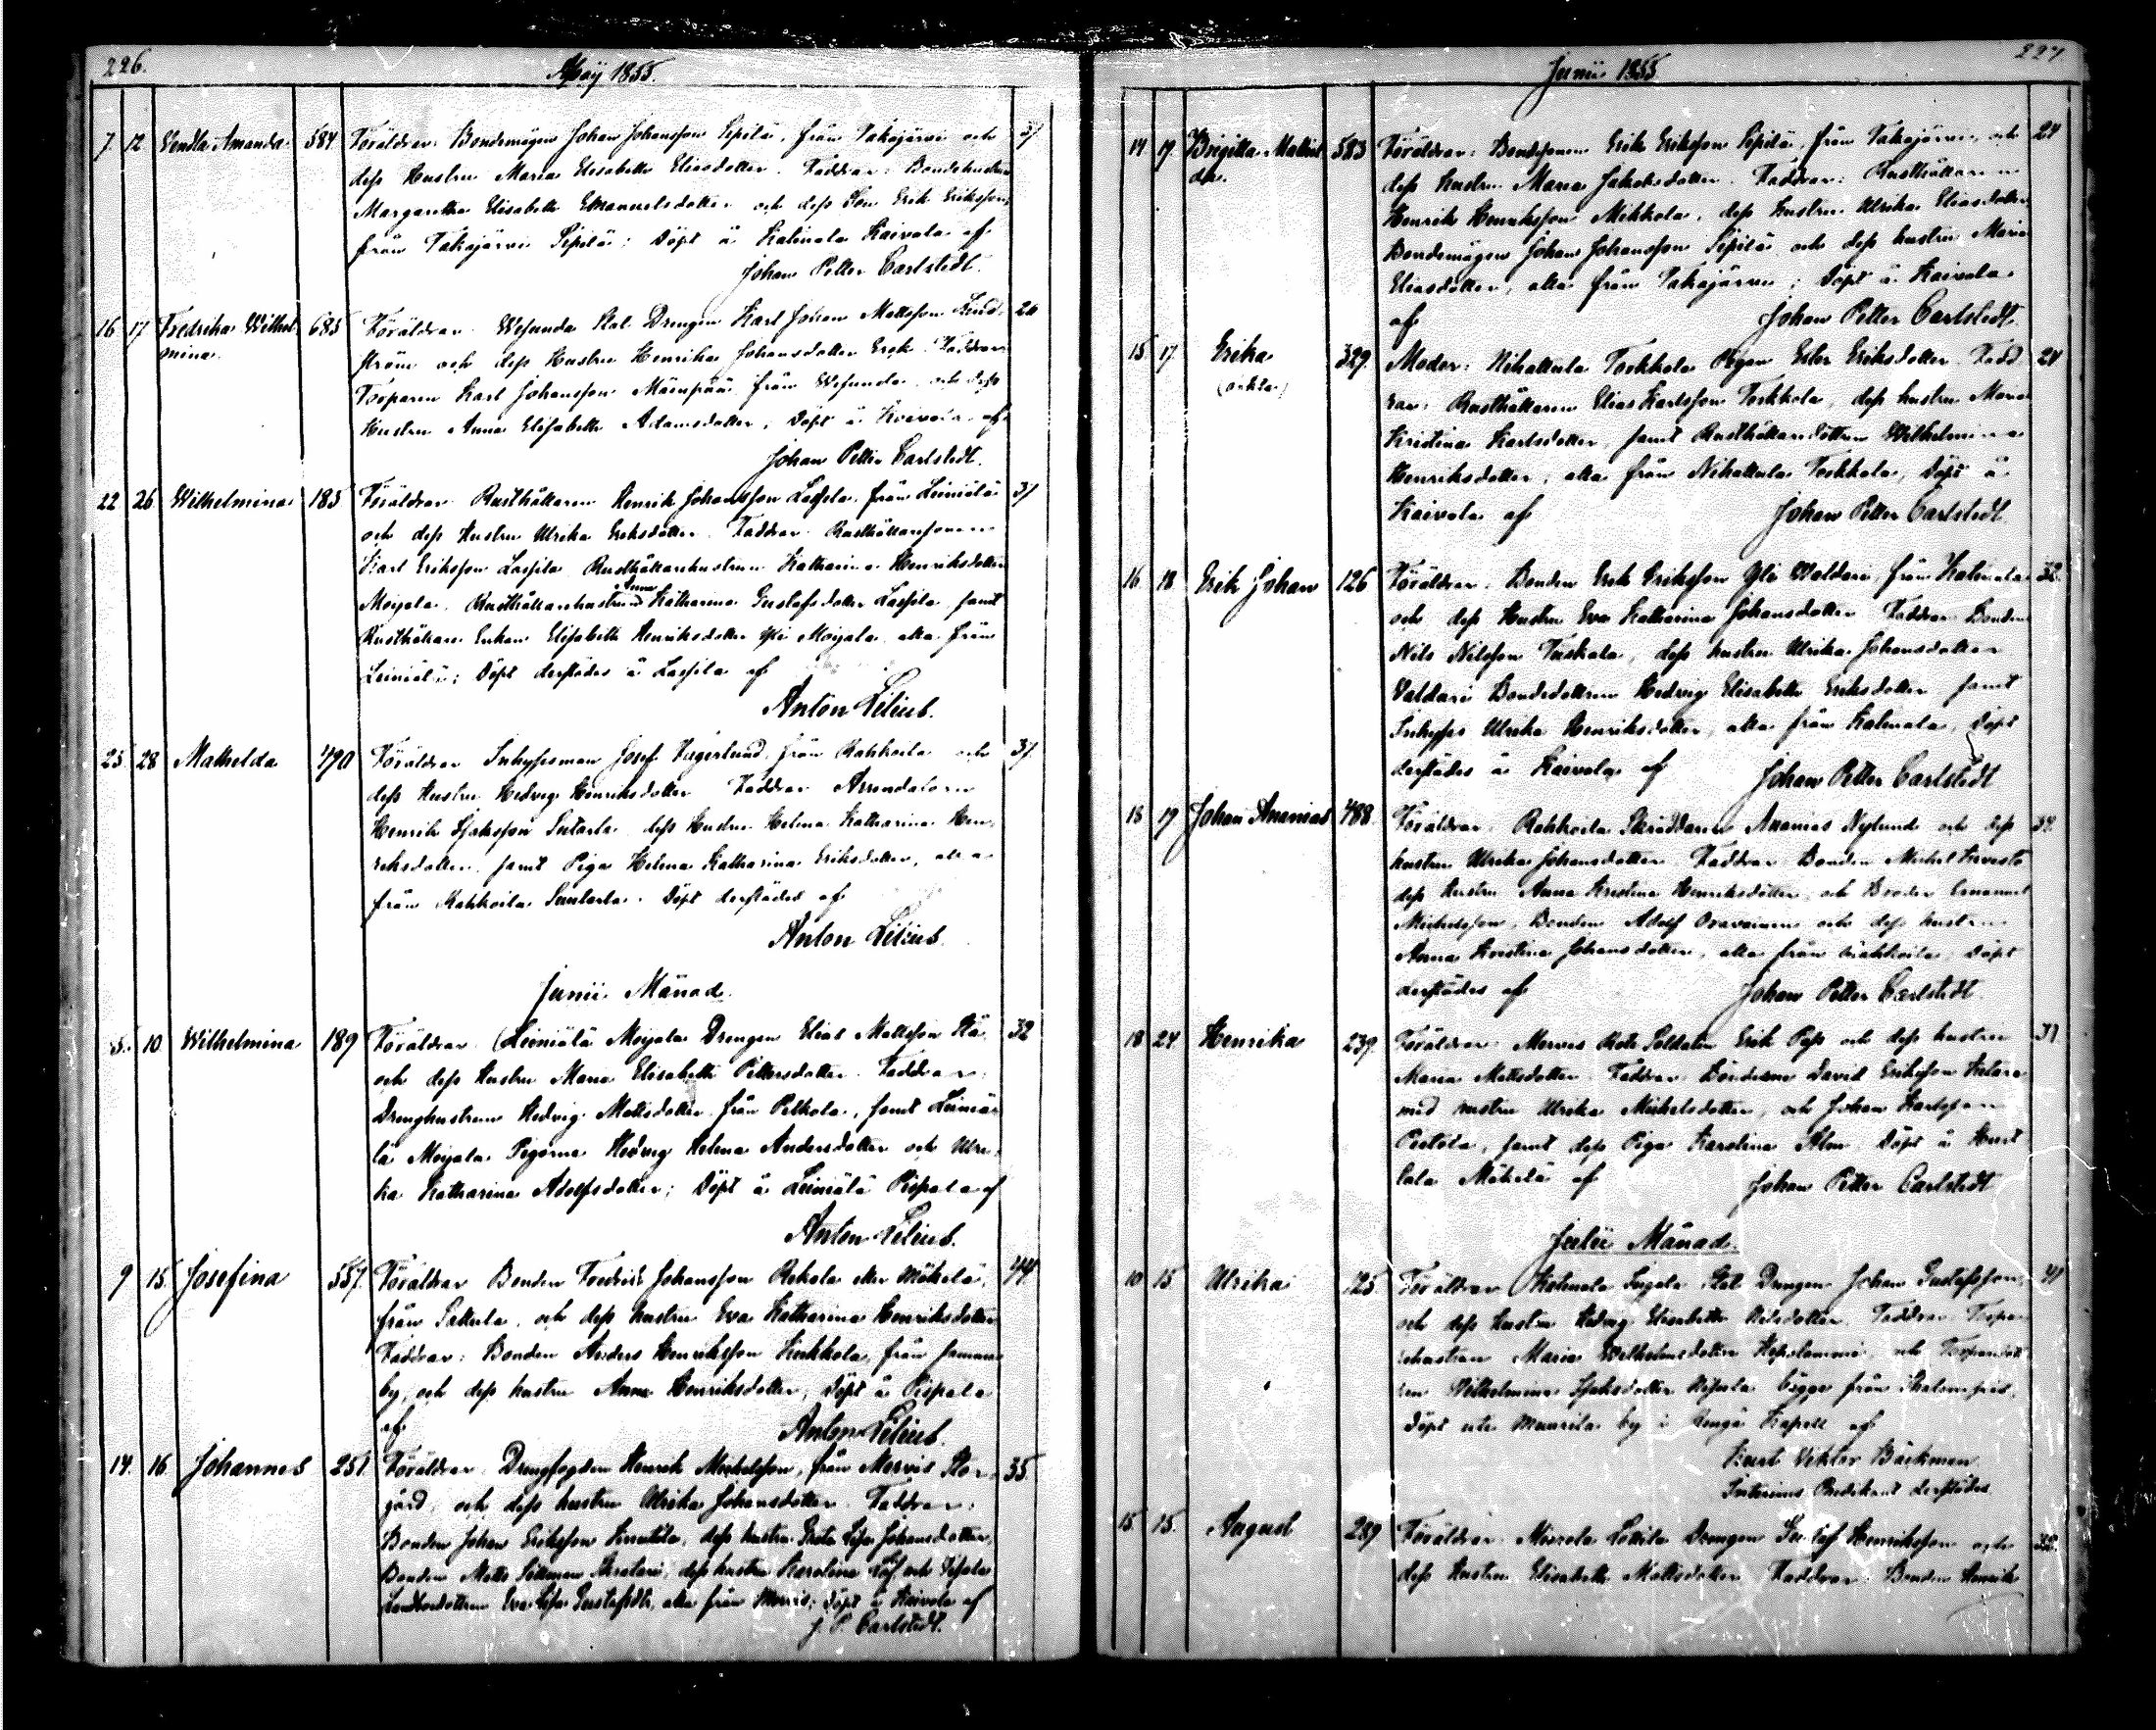 226.
May 1855.
7. 12 Vendla Amanda 584 Föräldrar: Bondemågen Johan Johansson Sipilä, från Takajärvi och 31
dess Hustru Maria Elisabeth Eliasdotter. Faddrar: Bondehustrun
Margaretha Elisabeth Emanuelsdotter och dess Son Erik Eriksson
från Takajärvi Sipilä; Döpt å Katinala Kaivola af
Johan Petter Carlstedt.
16. 17 Fredrika Wilhel- 685 Föräldrar: Wesunda Stat Drengen Karl Johan Mattsson Lind- 26
mina. ström och dess Hustru Henrika Johansdotter Faddrar
Torparen Karl Johansson Mäenpää från Wesunda och dess
Hustru Anna Elisabeth Adamsdotter; Döpt å Kaivola af
Johan Petter Carlstedt.
22 26. Wilhelmina 185 Föräldrar: Rusthållaren Henrik Johansson Lassila från Leiniälä 31
och dess Hustru Ulrika Eriksdotter. Faddrar: Rusthållaresonen
Karl Eriksson Lassila Rusthållarehustrun Katharina Henriksdotter
Moijala, Rusthållarehustrun Anna Katharina Gustafsdotter Lassila, samt
Rusthållare Enkan Elisabeth Henriksdotter Yli Moijala, alla från
Leiniälä; Döpt derstädes å Lassila af
Anton Lilius.
25. 28 Mathilda 490 Föräldrar Inhysesman Josef Hägerlund från Rahkoila och 31.
dess Hustru Hedvig Henriksdotter Faddrar Arrendatorn
Henrik Isaksson Suutarla, dess Hustru Helena Katharina Hen-
riksdotter samt Pigan Helena Katharina Eriksdotter, alla
från Rahkoila Suutarla. Döpt derstädes af
Anton Lilius.
Junii Månad.
5. 10. Wilhelmina 189 Föräldrar: Leiniälä Moijala Drengen Elias Mattsson 32
och dess Hustru Maria Elisabeth Pettersdotter. Faddrar:
Drenghustrun Hedvig Mattsdotter från Pelkola, samt Leiniä-
lä Moijala Pigorna Hedvig Helena Andersdotter och Ulri-
ka Katharina Adolfsdotter; Döpt å Leiniälä Pispala af
Anton Lilius.
9 15. Josefina 557. Föräldrar Bonden Fredrik Johansson Rekola eller Mäkelä, 44.
från Sattula, och dess hustru Eva Katharina Henriksdotter
Faddrar: Bonden Anders Henriksson Kirkkola, från samma
by, och dess hustru Anna Henriksdotter, Döpt å Pispala
af Anton Lilius.
14. 16. Johannes 251. Föräldrar. Drengfogden Henrik Michelsson, från Mervis Stor- 35.
gård, och dess hustru Ulrika Johansdotter. Faddrar:
Bonden Johan Eriksson dess hustru Greta Lisa Johansdotter,
Bonden Matts dess hustru Karolina och
Eva Lisa Gustafsdtr, alla från Mervis; Döpt å Kaivola af
J. P. Carlstedt.
227
Junii 1855
14 17. Brigitta Mathil- 583 Föräldrar: Bondesonen Erik Eriksson Sipilä, från Takajärvi, och 24
da. dess hustru Maria Jakobsdotter. Faddrar: Rusthållaren
Henrik Henriksson Mikkola, dess hustru Ulrika Eliasdotter
Bondemågen Johan Johansson Sipilä och dess hustru Maria
Eliasdotter, alla från Takajärvi; Döpt å Kaivola
af Johan Petter Carlstedt.
15. 17. Erika 329. Moder: Nihattula Torkkola Pigan Ester Eriksdotter. Fadd- 24
(oäkta) rar: Rusthållaren Elias Karlsson Torkkola, dess hustru Maria
Kristina Karlsdotter, samt Rusthållaredottren Wilhelmina
Henriksdotter, alla från Nihattula Torkkola, Döpt å
Kaivola af Johan Petter Carlstedt.
16. 18 Erik Johan 126 Föräldrar: Bonden Erik Eriksson Yli Waldari från Katinala 32.
och dess Hustru Eva Katharina Johansdotter Faddrar Bonden
Nils Nilsson Tuskala, dess hustru Ulrika Johansdotter
Valdari Bondedottren Hedvig Elisabeth Eriksdotter, samt
Inhyses Ulrika Henriksdotter, alla från Katinala, Döpt
derstädes å Kaivola af Johan Petter Carlstedt
18 19 Johan Ananias 488. Föräldrar: Rahkoila Skräddaren Ananias Nylund och dess
hustru Ulrika Johansdotter. Faddrar Bonden Michel
dess hustru Anna Kristina Henriksdotter, och Broder Emanuel
Michelsson, Bonden Adolf Oravainen och dess hustru
Anna Kristina Johansdotter, alla från Rahkoila, Döpt
derstädes af Johan Petter Carlstedt.
18 24. Henrika 239. Föräldrar: Mervis Rote Soldaten Erik och dess hustru
Maria Mattsdotter. Faddrar Bönderne David Eriksson
med hustru Ulrika Michelsdotter, och Johan Karlsson
samt dess Piga Karolina Döpt å
Mäkelä af Johan Petter Carlstedt
Julii Månad.
10 15 Ulrika 125. Föräldrar Katinala Stat Drengen Johan Gustafsson, 41
och dess hustru Hedvig Elisabeth Nilsdotter. Faddrar Torpa-
rehustrun Maria Wilhelmsdotter och
Wilhelmina Isaksdotter bägge från
Döpt uti by i Kapell af
Karl Viktor Bäckman
Interims Predikant derstädes
15. 15. August 289 Föräldrar: Mierola Drengen Henriksson och 32.
dess Hustru Elisabeth Mattsdotter Faddrar: Bonden Henrik